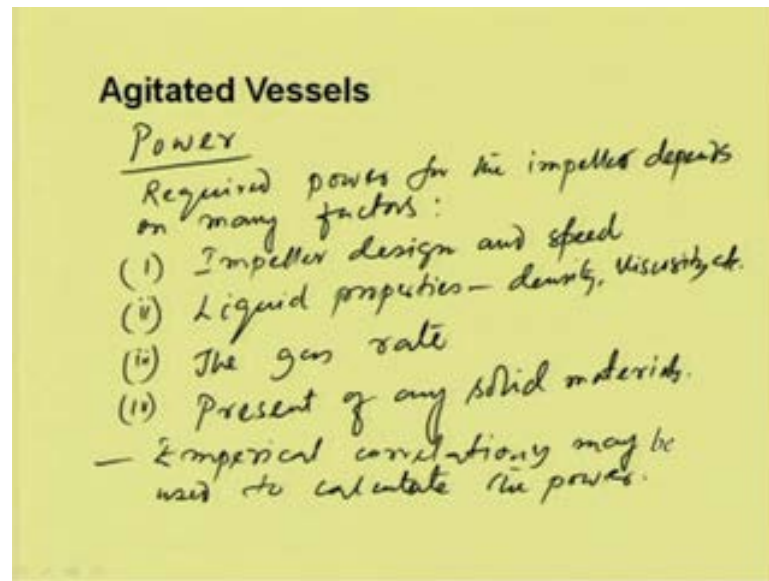 Agitated Vessels
Power
Required power for the impeller depends
on many factors:
(i) Impeller design and speed
(ii) Liquid properties – density, viscosity, etc.
(iii) The gas rate
(iv) Present of any solid materials.
– Emperical correlations may be
used to calculate the power.